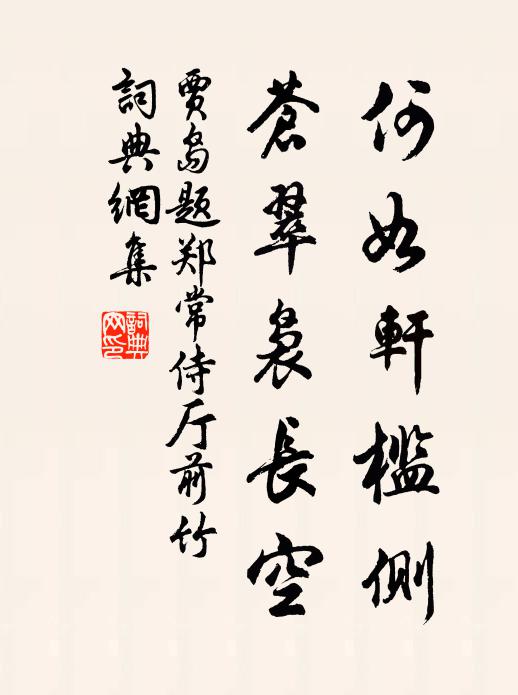 何如軒檻側
蒼翠裊長空
賈島题郑常侍厅前竹
詞典網集
詞典網印